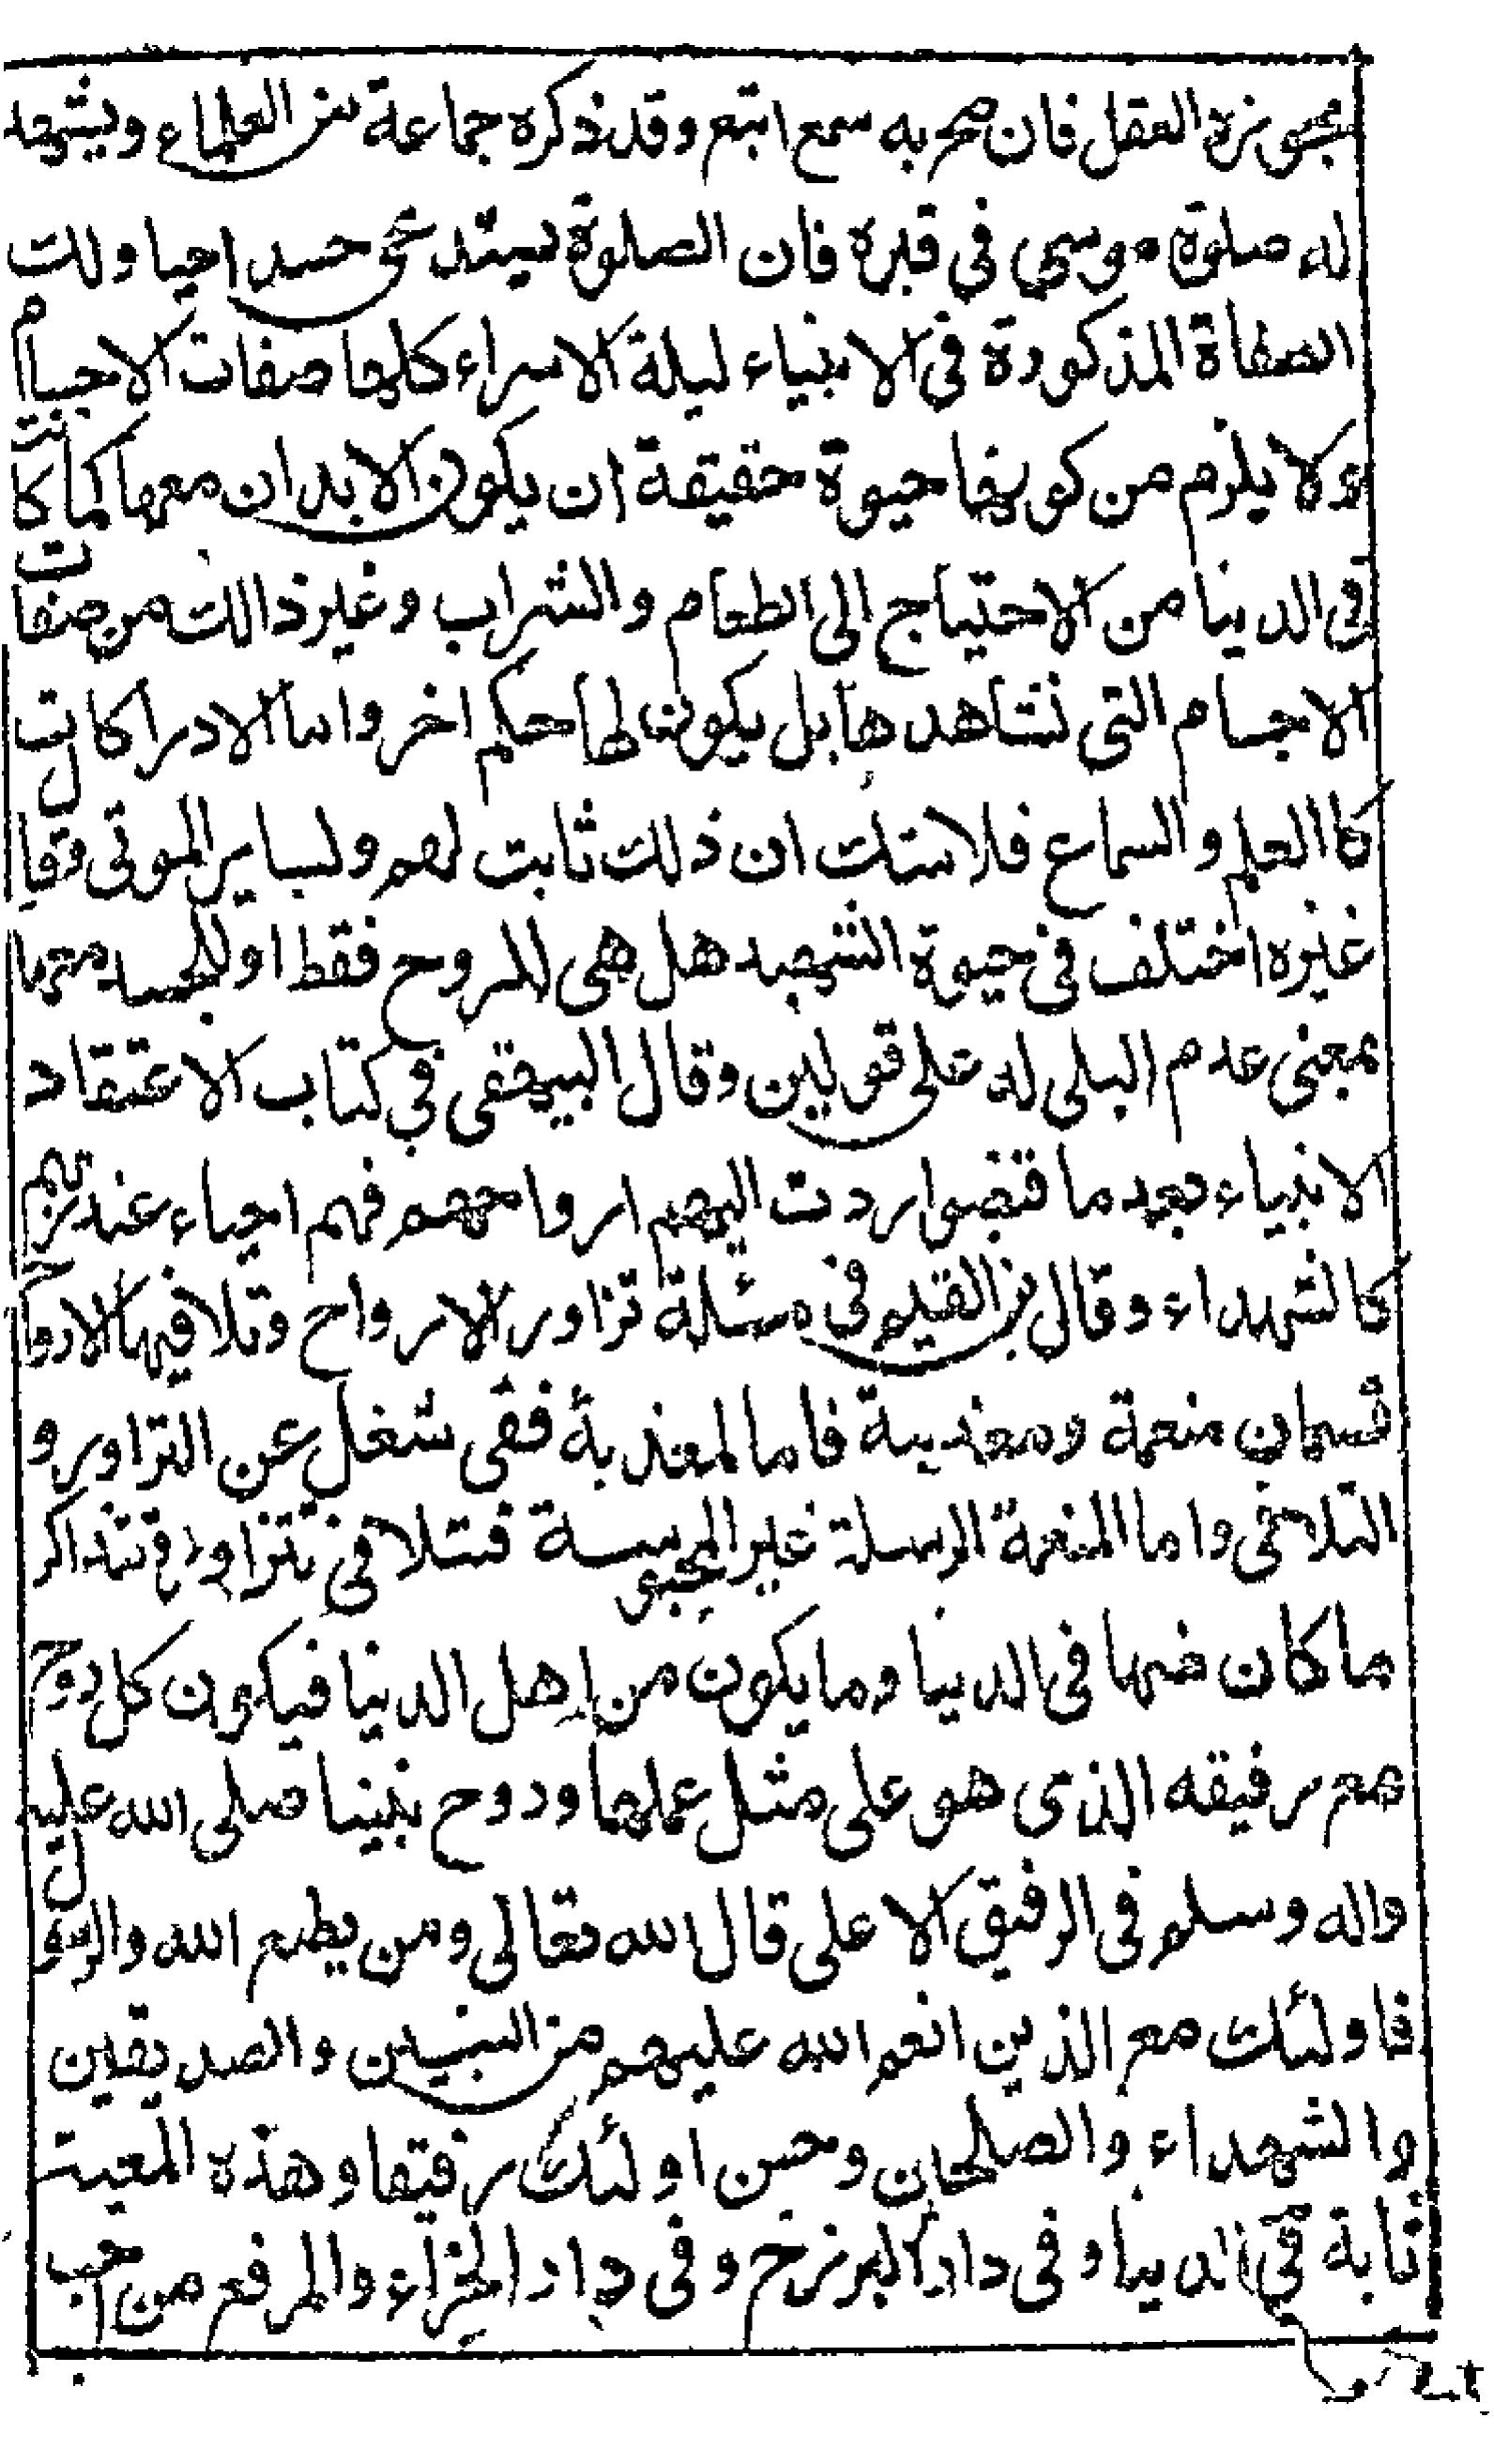 يجوزه العقل فان صح به سمع اتبع وقد ذكره جماعة من العلماء ويشهد
له صلوة موسى فى قبره فان الصلوة يستدعى جسد احيا ولك
الصفاة المذكورة فى الانبياء ليلة الاسراء كلها صفات الاجسام
ولا يلزم من كونها حيوة حقيقة ان يكون الابدان معها كما كانت
فى الدنيا من الاحتياج الى الطعام والشراب وغير ذالك من صفات
الاجسام التى نشاهدها بل يكون لها حكم اخر واما الادراكات
كاالعلم والسماع فلا شك ان ذلك ثابت لهم ولساير الموتى وقال
غيره اختلف فى حيوة الشهيد هل هى للروح فقط او للجسد معها
بمعنى عدم البلى له على قولين وقال البيهقى فى كتاب الاعتقاد
الانبياء بعد ما قبضوا ردت اليهم ارواحهم فهم احياء عند ربهم
كالشهداء وقال بن القيم فى مسئلة تزاور الارواح وتلاقيها الارواح
قسمان منعمة ومعذبة فاما المعذبة ففى شغل عن التزاور و
التلاقى واما المنعمة المرسلة غير المحبوسة فتلاقى تتزاور وتتذاكر
ما كان منها فى الدنيا وما يكون من اهل الدنيا فيكون كل روح
مع رفيقه الذى هو على مثل عملها وروح نبينا صلى الله عليه
واله وسلم فى الرفيق الاعلى قال الله تعالى ومن يطع الله والرسول
فاولئك مع الذين انعم الله عليهم من النبيين والصديقين
والشهداء والصلحين وحسن اولئك رفيقا وهذه المعية
ثابة فى الدنيا وفى دار البرزخ وفى دار الجزاء والمرفع من احب